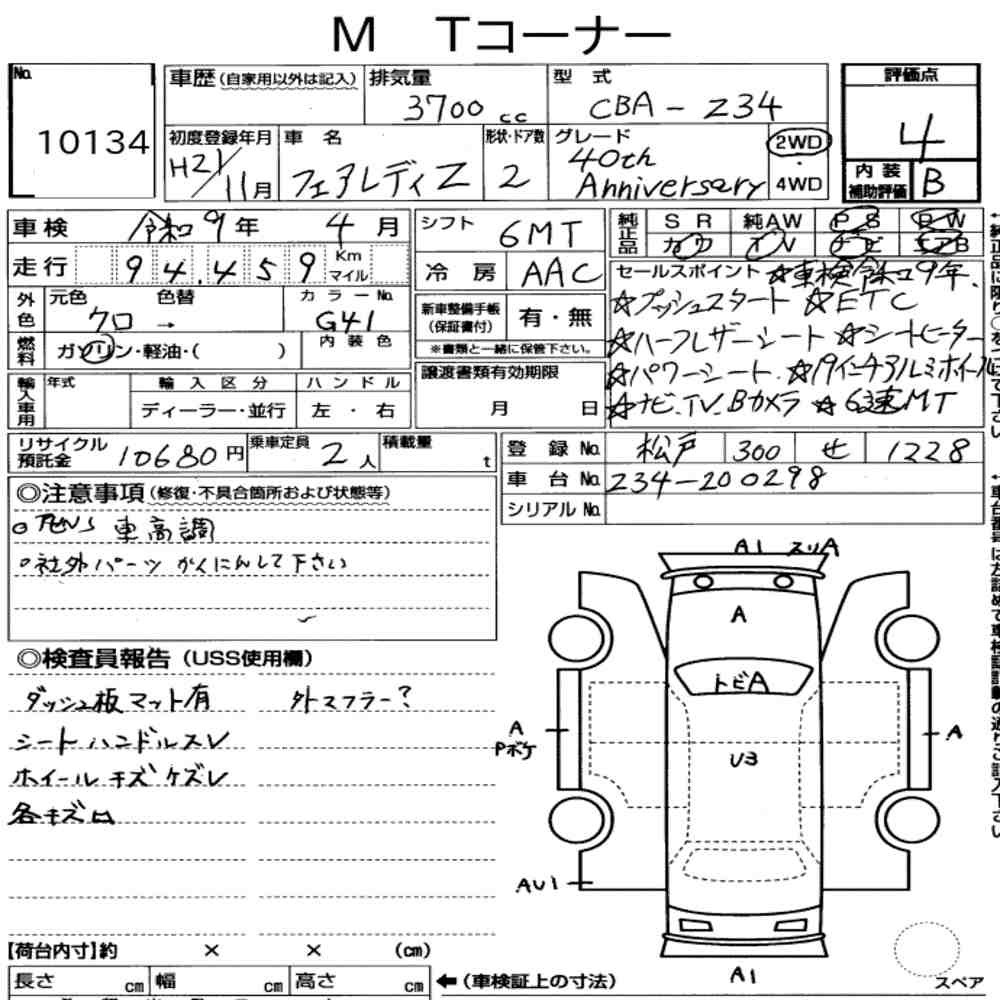 M Tコーナー
No. 10134
車歴(自家用以外は記入) 排気量 3700 cc 型式 CBA-Z34
評価点 4
内装補助評価 B
初度登録年月 H21/11月 車名 フェアレディZ 形状・ドア数 2 グレード 40th Anniversary 2WD・4WD
車検 令和9年 4月 シフト 6MT
純正品 SR 純AW PS PW
走行 94,459 Km マイル 冷房 AAC
外色 元色 クロ → 色替 カラーNo. G41
燃料 ガソリン・軽油・( ) 内装色
新車整備手帳(保証書付) 有・無
※書類と一緒に保管下さい。
セールスポイント ☆車検令和9年.
☆プッシュスタート ☆ETC
☆ハーフレザーシート ☆シートヒーター
☆パワーシート. ☆19インチアルミホイール
☆ナビ.TV.Bカメラ ☆6速MT
輸入車用 年式 輸入区分 ハンドル
ディーラー・並行 左・右
譲渡書類有効期限
月 日
リサイクル預託金 10680円 乗車定員 2人 積載量 t
登録No. 松戸 300 せ 1228
車台No. Z34-200298
シリアルNo.
◎注意事項(修復・不具合箇所および状態等)
○TENS 車高調
○社外パーツ かくにんして下さい
◎検査員報告(USS使用欄)
ダッシュ板マット有 外マフラー?
シートハンドルスレ
ホイールキズケズレ
各キズ凹
A1 スリA
A
トビA
A Pボケ
A
U3
AU1
A1
スペア
【荷台内寸】約 × × (cm)
長さ cm 幅 cm 高さ cm ←(車検証上の寸法)